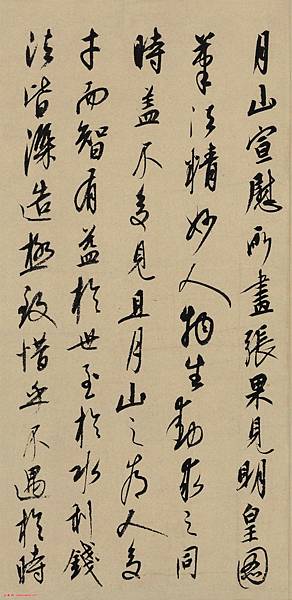 月山宣慰所畫張果見明皇圖
筆法精妙人物生動求之同
時盖不多見且月山之為人多
才而智有益於世至於水利錢
法皆深造極致惜乎不遇於時